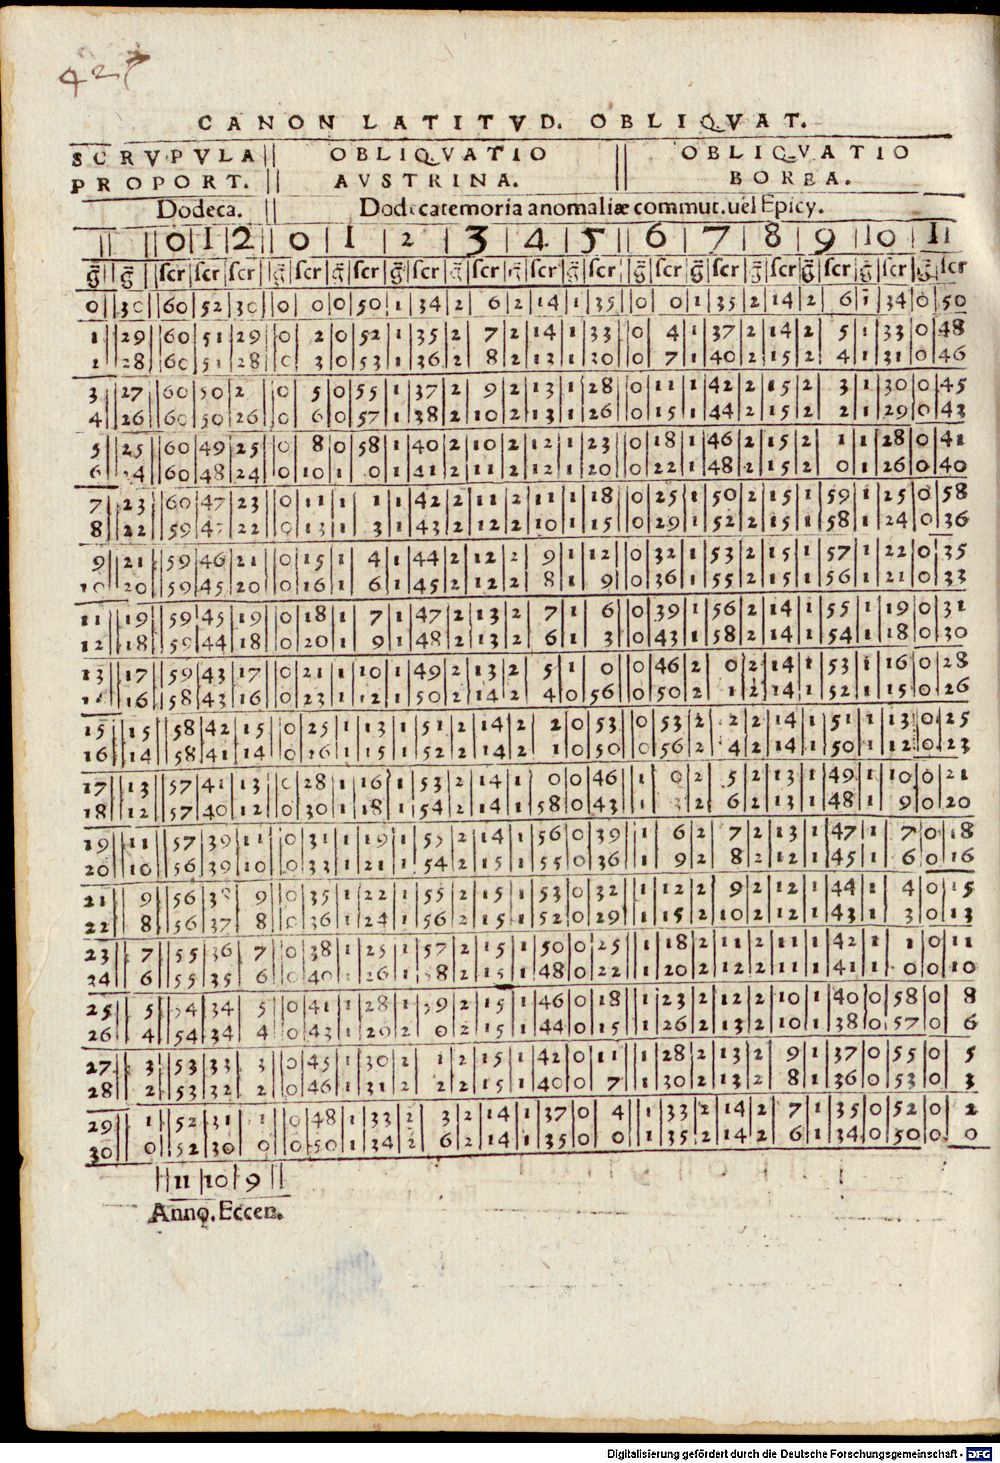 427
CANON LATITVD. OBLIQVAT.
SCRVPVLA || OBLIQVATIO || OBLIQVATIO
PROPORT. || AVSTRINA. || BOREA.
Dodeca. || Dodecatemoria anomaliæ commut. uel Epicy.
|| || 0 | 1 | 2 || 0 | 1 | 2 | 3 | 4 | 5 || 6 | 7 | 8 | 9 | 10 | 11
g̃ || g̃ || scr | scr | scr || g̃ | scr | g̃ | scr | g̃ | scr | g̃ | scr | g̃ | scr | g̃ | scr || g̃ | scr | g̃ | scr | g̃ | scr | g̃ | scr | g̃ | scr | g̃ | scr
0 || 30 || 60 | 52 | 30 || 0 | 0 | 0 | 50 | 1 | 34 | 2 | 6 | 2 | 14 | 1 | 35 || 0 | 0 | 1 | 35 | 2 | 14 | 2 | 6 | 1 | 34 | 0 | 50
1 || 29 || 60 | 51 | 29 || 0 | 2 | 0 | 52 | 1 | 35 | 2 | 7 | 2 | 14 | 1 | 33 || 0 | 4 | 1 | 37 | 2 | 14 | 2 | 5 | 1 | 33 | 0 | 48
2 || 28 || 60 | 51 | 28 || 0 | 3 | 0 | 53 | 1 | 36 | 2 | 8 | 2 | 13 | 1 | 30 || 0 | 7 | 1 | 40 | 2 | 15 | 2 | 4 | 1 | 31 | 0 | 46
3 || 27 || 60 | 50 | 2 || 0 | 5 | 0 | 55 | 1 | 37 | 2 | 9 | 2 | 13 | 1 | 28 || 0 | 11 | 1 | 42 | 2 | 15 | 2 | 3 | 1 | 30 | 0 | 45
4 || 26 || 60 | 50 | 26 || 0 | 6 | 0 | 57 | 1 | 38 | 2 | 10 | 2 | 13 | 1 | 26 || 0 | 15 | 1 | 44 | 2 | 15 | 2 | 2 | 1 | 29 | 0 | 43
5 || 25 || 60 | 49 | 25 || 0 | 8 | 0 | 58 | 1 | 40 | 2 | 10 | 2 | 12 | 1 | 23 || 0 | 18 | 1 | 46 | 2 | 15 | 2 | 1 | 1 | 28 | 0 | 41
6 || 24 || 60 | 48 | 24 || 0 | 10 | 1 | 0 | 1 | 41 | 2 | 11 | 2 | 12 | 1 | 20 || 0 | 22 | 1 | 48 | 2 | 15 | 2 | 0 | 1 | 26 | 0 | 40
7 || 23 || 60 | 47 | 23 || 0 | 11 | 1 | 1 | 1 | 42 | 2 | 11 | 2 | 11 | 1 | 18 || 0 | 25 | 1 | 50 | 2 | 15 | 1 | 59 | 1 | 25 | 0 | 58
8 || 22 || 59 | 47 | 22 || 0 | 13 | 1 | 3 | 1 | 43 | 2 | 12 | 2 | 10 | 1 | 15 || 0 | 29 | 1 | 52 | 2 | 15 | 1 | 58 | 1 | 24 | 0 | 36
9 || 21 || 59 | 46 | 21 || 0 | 15 | 1 | 4 | 1 | 44 | 2 | 12 | 2 | 9 | 1 | 12 || 0 | 32 | 1 | 53 | 2 | 15 | 1 | 57 | 1 | 22 | 0 | 35
10 || 20 || 59 | 45 | 20 || 0 | 16 | 1 | 6 | 1 | 45 | 2 | 12 | 2 | 8 | 1 | 9 || 0 | 36 | 1 | 55 | 2 | 15 | 1 | 56 | 1 | 21 | 0 | 33
11 || 19 || 59 | 45 | 19 || 0 | 18 | 1 | 7 | 1 | 47 | 2 | 13 | 2 | 7 | 1 | 6 || 0 | 39 | 1 | 56 | 2 | 14 | 1 | 55 | 1 | 19 | 0 | 31
12 || 18 || 59 | 44 | 18 || 0 | 20 | 1 | 9 | 1 | 48 | 2 | 13 | 2 | 6 | 1 | 3 || 0 | 43 | 1 | 58 | 2 | 14 | 1 | 54 | 1 | 18 | 0 | 30
13 || 17 || 59 | 43 | 17 || 0 | 21 | 1 | 10 | 1 | 49 | 2 | 13 | 2 | 5 | 1 | 0 || 0 | 46 | 2 | 0 | 2 | 14 | 1 | 53 | 1 | 16 | 0 | 28
14 || 16 || 58 | 43 | 16 || 0 | 23 | 1 | 12 | 1 | 50 | 2 | 14 | 2 | 4 | 0 | 56 || 0 | 50 | 2 | 1 | 2 | 14 | 1 | 52 | 1 | 15 | 0 | 26
15 || 15 || 58 | 42 | 15 || 0 | 25 | 1 | 13 | 1 | 51 | 2 | 14 | 2 | 2 | 0 | 53 || 0 | 53 | 2 | 2 | 2 | 14 | 1 | 51 | 1 | 13 | 0 | 25
16 || 14 || 58 | 41 | 14 || 0 | 26 | 1 | 15 | 1 | 52 | 2 | 14 | 2 | 1 | 0 | 50 || 0 | 56 | 2 | 4 | 2 | 14 | 1 | 50 | 1 | 12 | 0 | 23
17 || 13 || 57 | 41 | 13 || 0 | 28 | 1 | 16 | 1 | 53 | 2 | 14 | 1 | 0 | 0 | 46 || 1 | 0 | 2 | 5 | 2 | 13 | 1 | 49 | 1 | 10 | 0 | 21
18 || 12 || 57 | 40 | 12 || 0 | 30 | 1 | 18 | 1 | 54 | 2 | 14 | 1 | 58 | 0 | 43 || 1 | 3 | 2 | 6 | 2 | 13 | 1 | 48 | 1 | 9 | 0 | 20
19 || 11 || 57 | 39 | 11 || 0 | 31 | 1 | 19 | 1 | 55 | 2 | 14 | 1 | 56 | 0 | 39 || 1 | 6 | 2 | 7 | 2 | 13 | 1 | 47 | 1 | 7 | 0 | 18
20 || 10 || 56 | 39 | 10 || 0 | 33 | 1 | 21 | 1 | 54 | 2 | 15 | 1 | 55 | 0 | 36 || 1 | 9 | 2 | 8 | 2 | 12 | 1 | 45 | 1 | 6 | 0 | 16
21 || 9 || 56 | 38 | 9 || 0 | 35 | 1 | 22 | 1 | 55 | 2 | 15 | 1 | 53 | 0 | 32 || 1 | 12 | 2 | 9 | 2 | 12 | 1 | 44 | 1 | 4 | 0 | 15
22 || 8 || 56 | 37 | 8 || 0 | 36 | 1 | 24 | 1 | 56 | 2 | 15 | 1 | 52 | 0 | 29 || 1 | 15 | 2 | 10 | 2 | 12 | 1 | 43 | 1 | 3 | 0 | 13
23 || 7 || 55 | 36 | 7 || 0 | 38 | 1 | 25 | 1 | 57 | 2 | 15 | 1 | 50 | 0 | 25 || 1 | 18 | 2 | 11 | 2 | 11 | 1 | 42 | 1 | 1 | 0 | 11
24 || 6 || 55 | 35 | 6 || 0 | 40 | 1 | 26 | 1 | 58 | 2 | 15 | 1 | 48 | 0 | 22 || 1 | 20 | 2 | 12 | 2 | 11 | 1 | 41 | 1 | 0 | 0 | 10
25 || 5 || 54 | 34 | 5 || 0 | 41 | 1 | 28 | 1 | 59 | 2 | 15 | 1 | 46 | 0 | 18 || 1 | 23 | 2 | 12 | 2 | 10 | 1 | 40 | 0 | 58 | 0 | 8
26 || 4 || 54 | 34 | 4 || 0 | 43 | 1 | 29 | 2 | 0 | 2 | 15 | 1 | 44 | 0 | 15 || 1 | 26 | 2 | 13 | 2 | 10 | 1 | 38 | 0 | 57 | 0 | 6
27 || 3 || 53 | 33 | 3 || 0 | 45 | 1 | 30 | 2 | 1 | 2 | 15 | 1 | 42 | 0 | 11 || 1 | 28 | 2 | 13 | 2 | 9 | 1 | 37 | 0 | 55 | 0 | 5
28 || 2 || 53 | 32 | 2 || 0 | 46 | 1 | 31 | 2 | 2 | 2 | 15 | 1 | 40 | 0 | 7 || 1 | 30 | 2 | 13 | 2 | 8 | 1 | 36 | 0 | 53 | 0 | 3
29 || 1 || 52 | 31 | 1 || 0 | 48 | 1 | 33 | 2 | 3 | 2 | 14 | 1 | 37 | 0 | 4 || 1 | 33 | 2 | 14 | 2 | 7 | 1 | 35 | 0 | 52 | 0 | 2
30 || 0 || 52 | 30 | 0 || 0 | 50 | 1 | 34 | 2 | 6 | 2 | 14 | 1 | 35 | 0 | 0 || 1 | 35 | 2 | 14 | 2 | 6 | 1 | 34 | 0 | 50 | 0 | 0
|| 11 | 10 | 9 ||
Anno. Eccen.
Digitalisierung gefördert durch die Deutsche Forschungsgemeinschaft - DFG